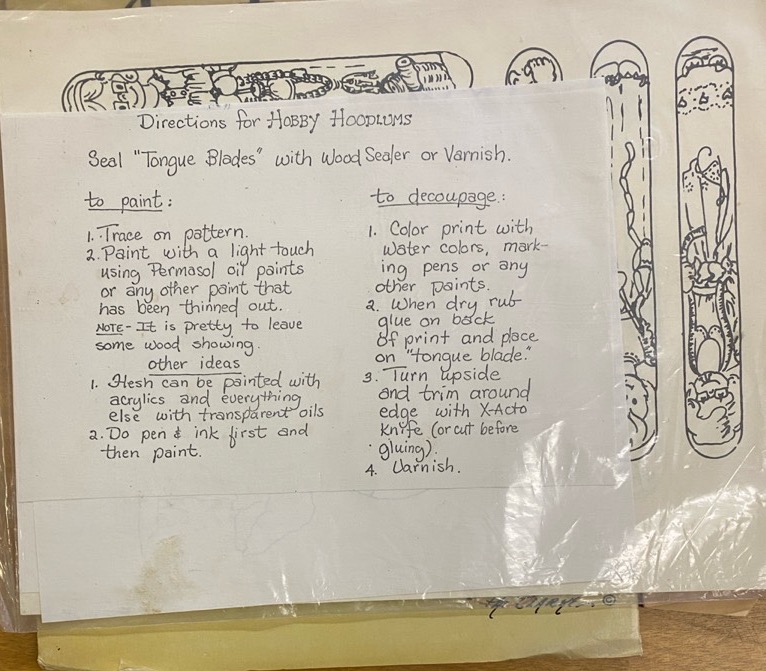 Directions for HOBBY HOODLUMS
Seal "Tongue Blades" with Wood Sealer or Varnish.
to paint:
1. Trace on pattern.
2. Paint with a light touch
using Permasol oil paints
or any other paint that
has been thinned out.
NOTE - It is pretty to leave
some wood showing.
other ideas
1. Flesh can be painted with
acrylics and everything
else with transparent oils
2. Do pen & ink first and
then paint.
to decoupage:
1. Color print with
water colors, mark-
ing pens or any
other paints.
2. When dry rub
glue on back
of print and place
on "tongue blade."
3. Turn upside
and trim around
edge with X-Acto
Knife (or cut before
gluing).
4. Varnish.
©